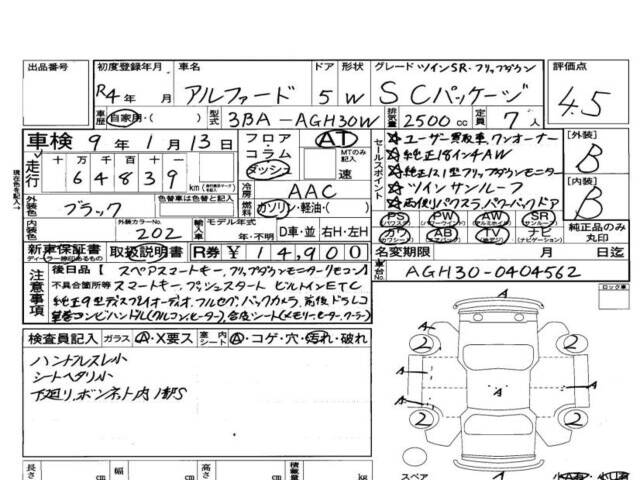 出品番号 初度登録年月 車名 ドア 形状 グレード ツインSR・フリップダウン 評価点
R4年 月 アルファード 5 W SCパッケージ 4.5
車歴 自家用・( ) 型式 3BA-AGH30W 排気量 2500cc 定員 7人
車検 9年1月13日 フロア コラム ダッシュ AT MTのみ記入 速
セールスポイント
☆ユーザー買取車、ワンオーナー
☆純正18インチAW
☆純正12.1型フリップダウンモニター
☆ツインサンルーフ
☆両側パワスラ パワーバックドア
[外装] B
[内装] B
走行 十万 万 千 百 十
64839 km
冷房 AAC
燃料 ガソリン・軽油・( )
外装色 ブラック 色替車は色替と記入
内装色 カラーNo. 202 輸入車 モデル年式 年・不明 D車・並 右H・左H
PS (パワステ) PW (パワーウインドウ) AW (アルミホイル) SR (サンルーフ)
カワ (カワシート) AB (エアバック) TV (純正テレビ) ナビ (ナビゲーション)
純正品のみ丸印
新車保証書 ディーラー印のあるもの 取扱説明書 R券 ¥14,900
名変期限 月 日迄
車台No. AGH30-0404562
注意事項
後日品【スペアスマートキー、フリップダウンモニターリモコン】
不具合箇所等 スマートキー、プッシュスタート ビルトインETC
純正9型ディスプレイオーディオ、フルセグ、バックカメラ、前後ドラレコ
革巻コンビハンドル(ウルコンヒーター)、合皮シート(メモリーヒーター・クーラー)
ロック車
検査員記入 ガラス A・X要ス 室内 シート A・コゲ・穴・汚れ・破れ
ハンドルスレ小
シートヘタリ小
下廻リ、ボンネット内1部S
A
A
2 2
A A A A
A
2 2
A
スペア
長さ cm 幅 cm 高さ cm 積載量 kg
現在色を記入→